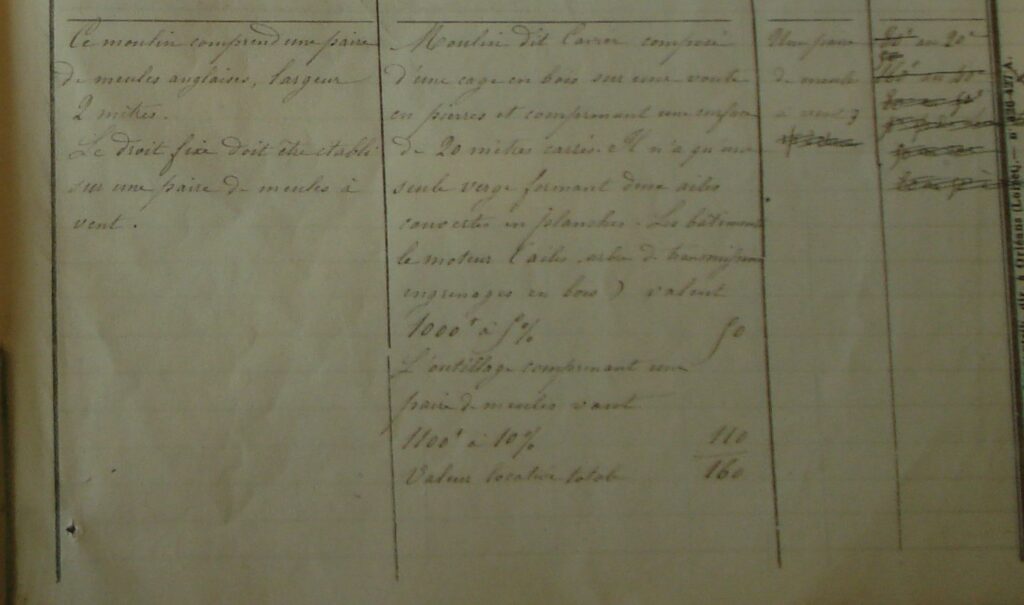 Ce moulin comprend une paire
de meules anglaises, largeur
2 mètres.
Le droit fixe doit être établi
sur une paire de meules à
vent.
Moulin dit Carrer composé
d'une cage en bois sur une voute
en pierres et comprenant une surface
de 20 mètres carrés. Il n'a qu'une
seule verge formant deux ailes
couvertes en planches. Les bâtiments
le moteur (ailes, arbre de transmission
engrenages en bois) valent
1000f à 5% 50
L'outillage comprenant une
paire de meules vaut
1100f à 10% 110
Valeur locative totale 160
Une paire
de meules
à vent
80f au 20e
160f au 40e